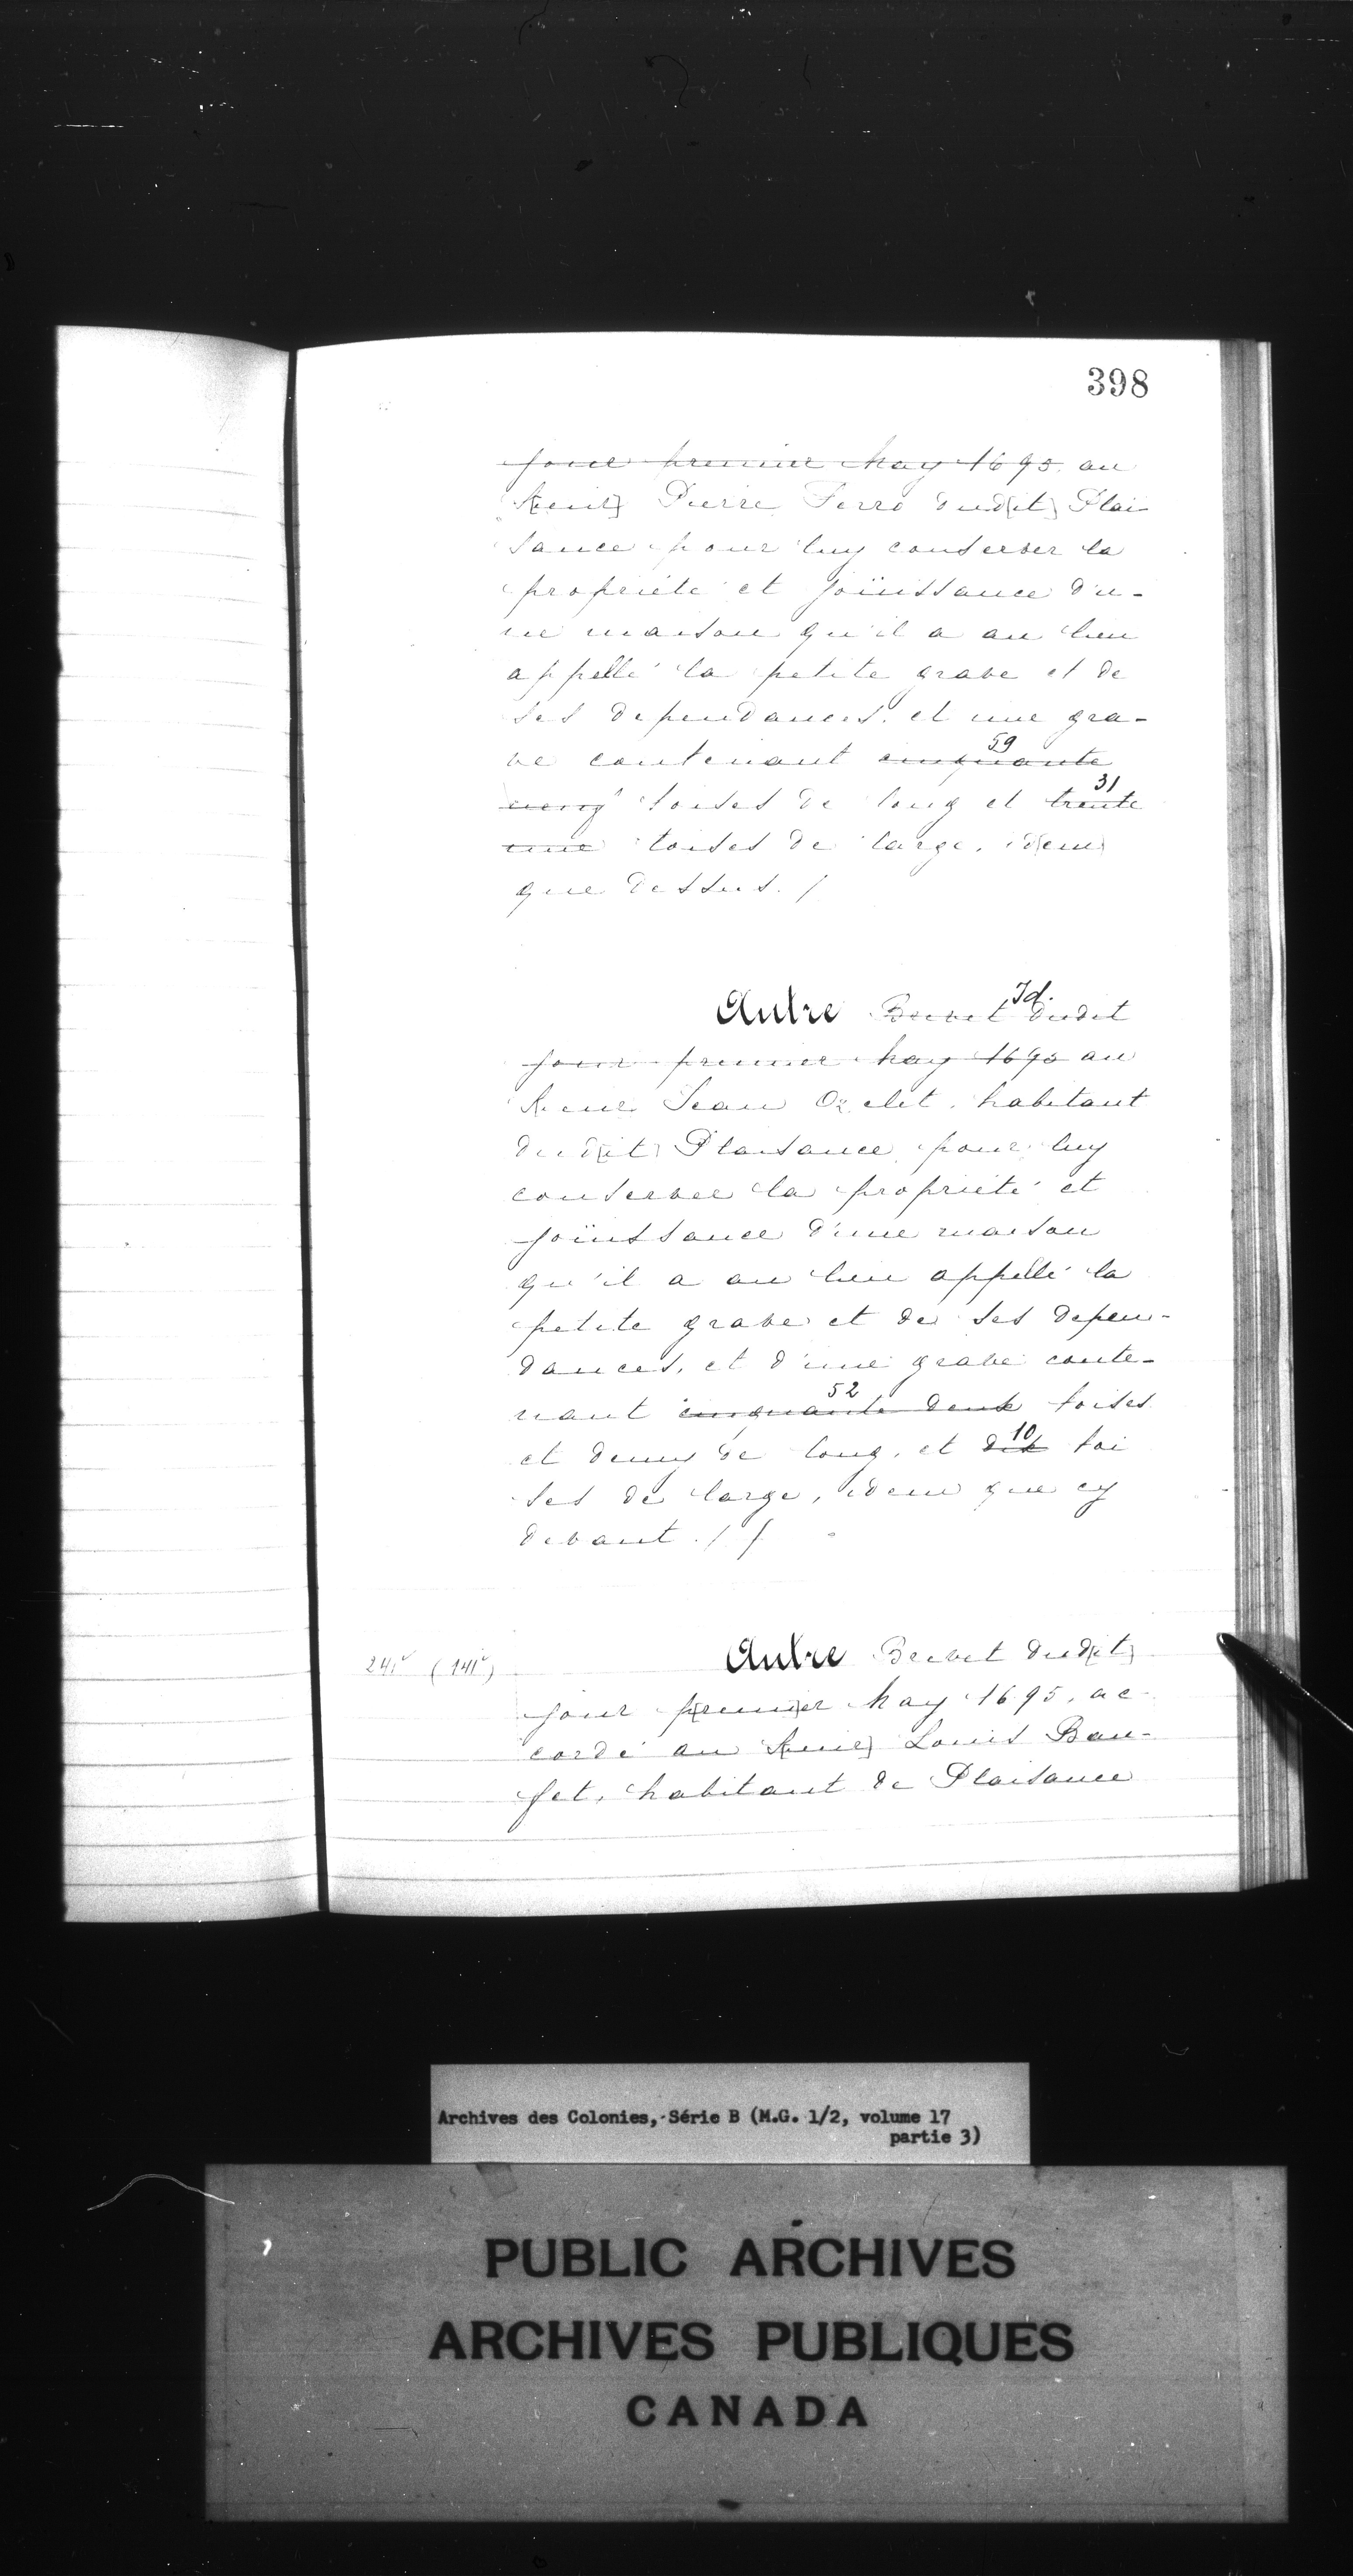 398
jour premier May 1695. au
S[ieur] Pierre Ferré dud[it] Plai
sance pour luy conserver la
propriété et joüissance d'u-
ne maison qu'il a au lieu
appellé la petite grave et de
ses dependances. et une gra-
59
ve contenant cinquante
31
neuf toises de long et trente
une toises de large. id[em]
que dessus. /
Id.
Autre Brevet dudit
jour premier May 1695 au
S[ieur] Jean Ozelet, habitant
dud[it] Plaisance, pour luy
conserver la propriété et
joüissance d'une maison
qu'il a au lieu appellé la
petite grave et de ses depen-
dances, et d'une grave conte-
52
nant cinquante deux toises
10
et demy de long, et dix toi
ses de large, idem que cy
devant. / /
241v (141v)
Autre Brevet dud[it]
jour p[remi]er May 1695, ac-
cordé au S[ieur] Louis Bau-
fet, habitant de Plaisance
Archives des Colonies, Série B (M.G. 1/2, volume 17
partie 3)
PUBLIC ARCHIVES
ARCHIVES PUBLIQUES
CANADA